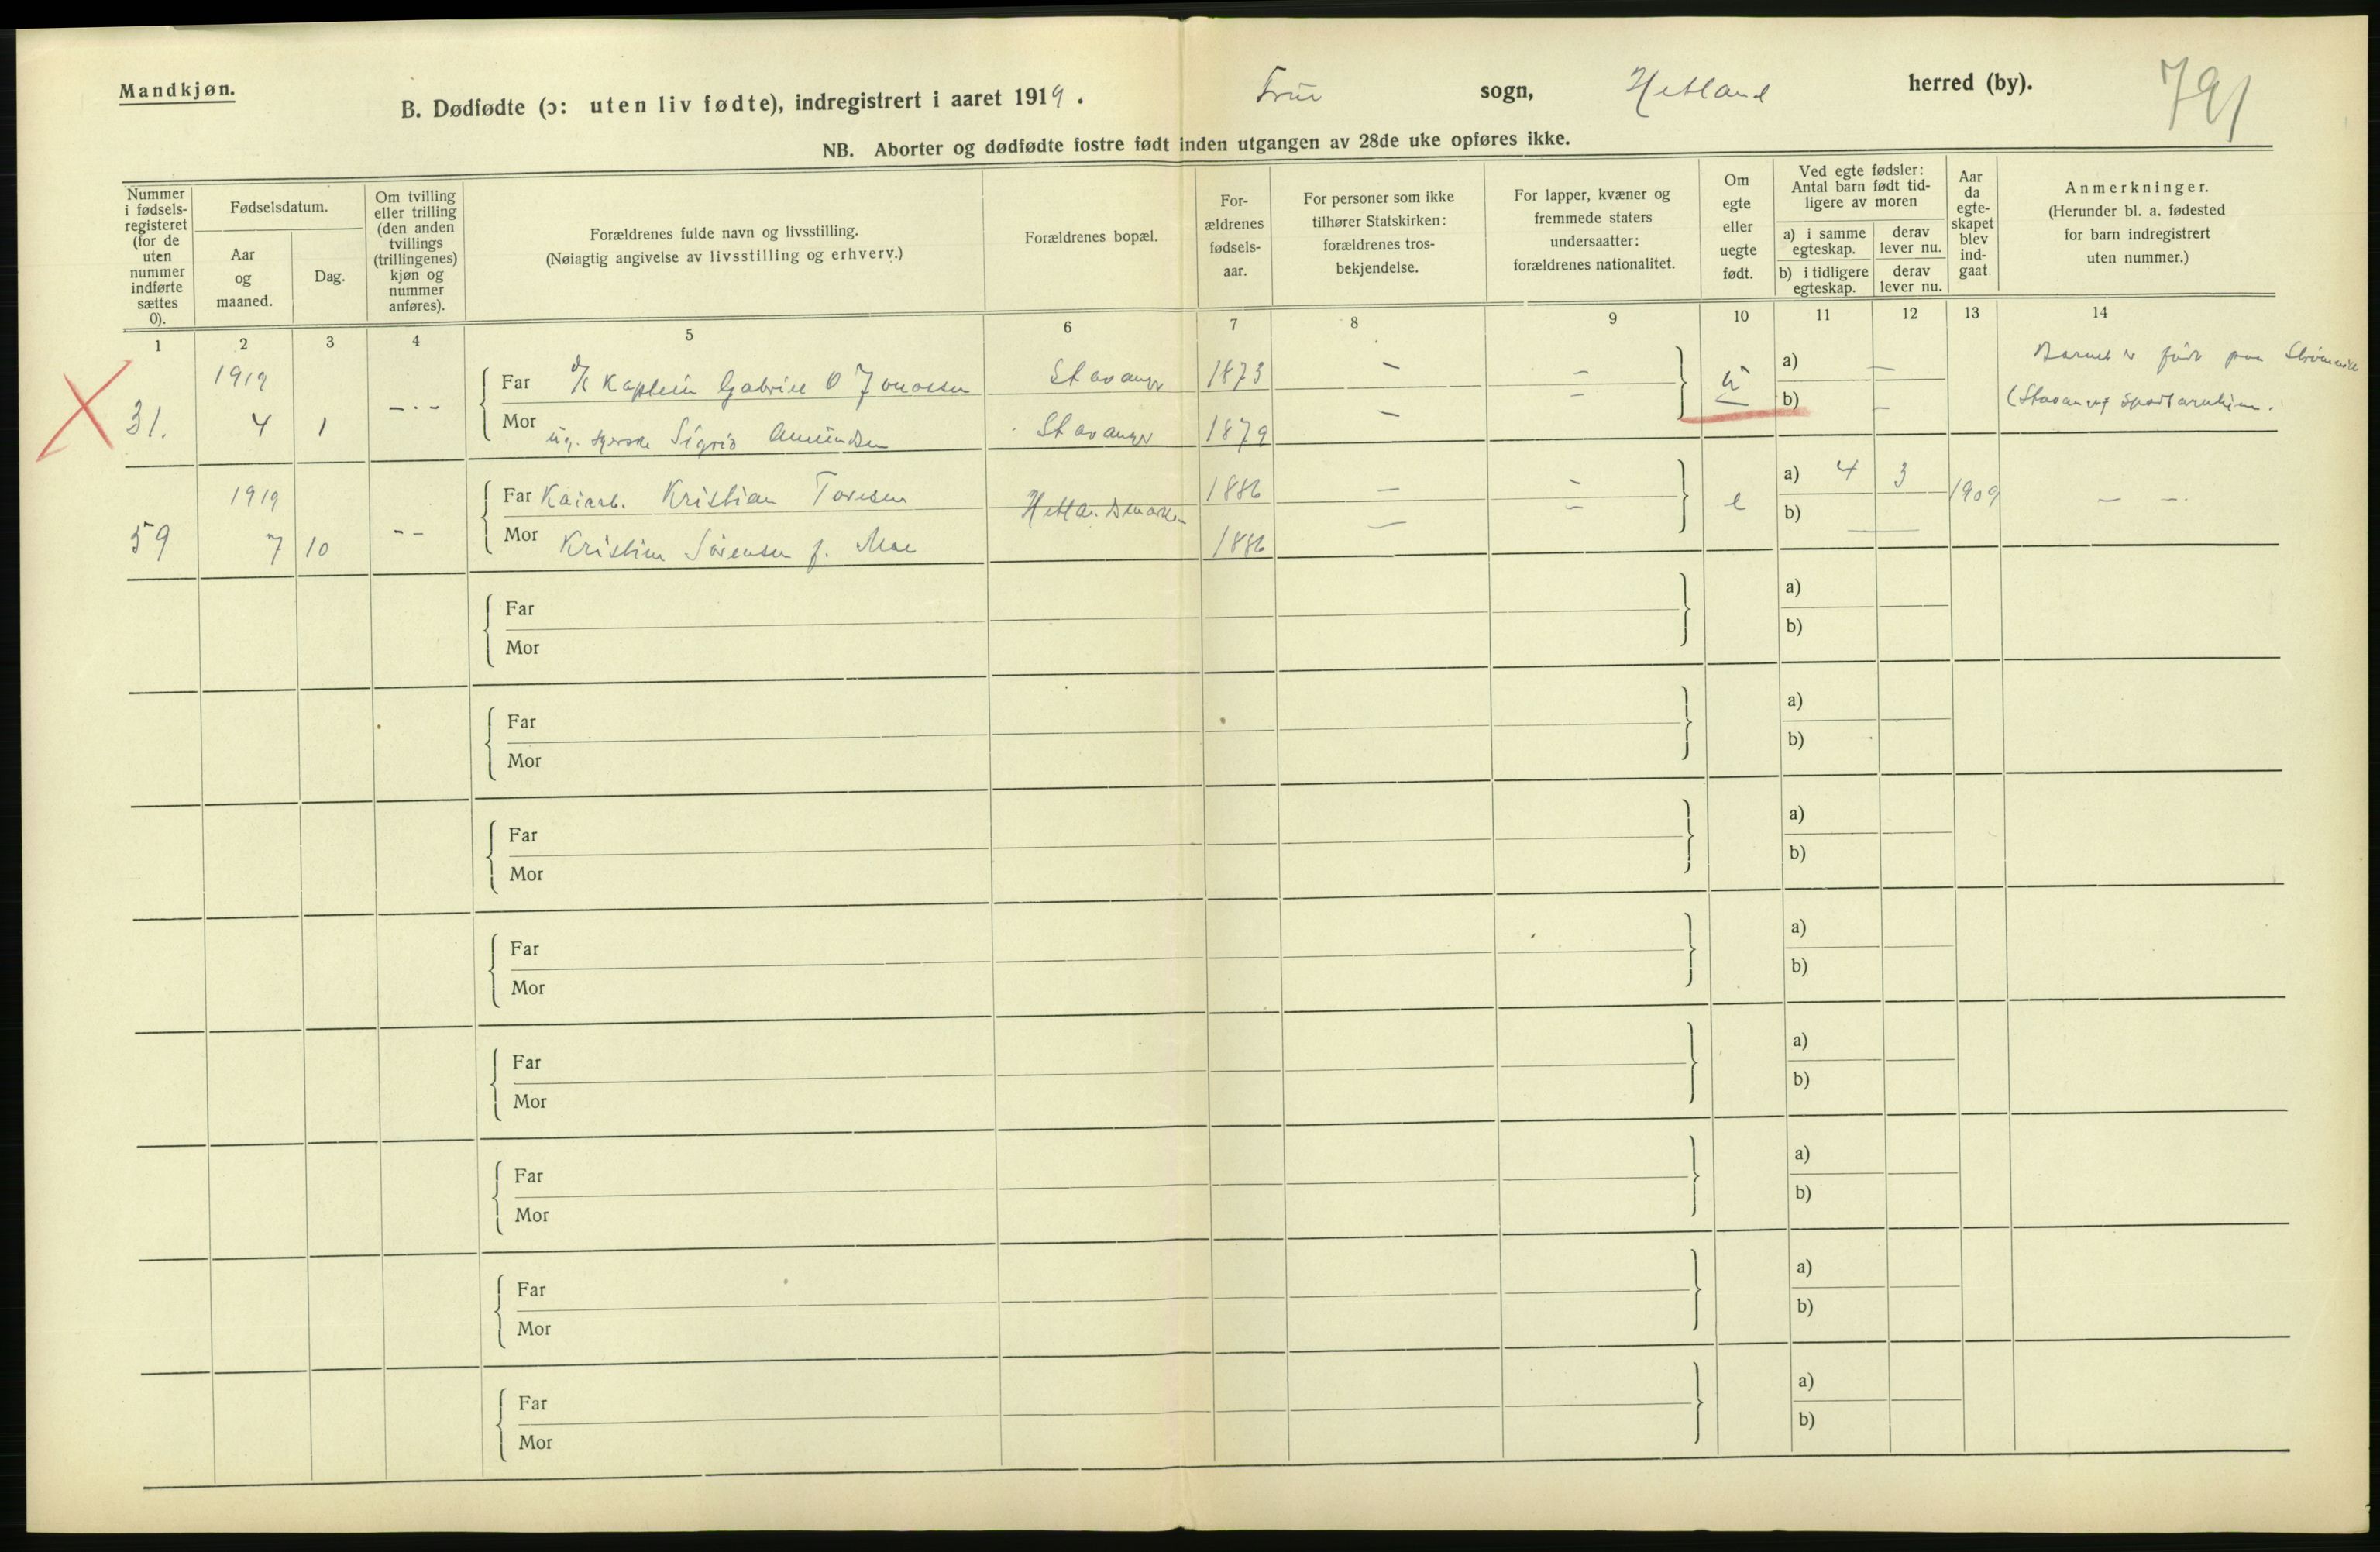 Mandkjøn.
B. Dødfødte (ɔ: uten liv fødte), indregistrert i aaret 1919. Frue sogn, Hetland herred (by).
791
NB. Aborter og dødfødte fostre født inden utgangen av 28de uke opføres ikke.
Nummer i fødsels-registeret (for de uten nummer indførte sættes 0).
Fødselsdatum.
Aar og maaned.
Dag.
Om tvilling eller trilling (den anden tvillings (trillingenes) kjøn og nummer anføres).
Forældrenes fulde navn og livsstilling.
(Nøiagtig angivelse av livsstilling og erhverv.)
Forældrenes bopæl.
For-ældrenes fødsels-aar.
For personer som ikke tilhører Statskirken: forældrenes tros-bekjendelse.
For lapper, kvæner og fremmede staters undersaatter: forældrenes nationalitet.
Om egte eller uegte født.
Ved egte fødsler: Antal barn født tid-ligere av moren
a) i samme egteskap.
derav lever nu.
b) i tidligere egteskap.
derav lever nu.
Aar da egte-skapet blev ind-gaat.
Anmerkninger.
(Herunder bl. a. fødested for barn indregistrert uten nummer.)
1 2 3 4 5 6 7 8 9 10 11 12 13 14
1919
31. 4 1 - . -
Far D/S Kaptein Gabriel O Jonassen Stavanger 1873 — — u a) —
Mor ug. syerske Sigrid Amundsen Stavanger 1879 — — b) —
Barnet er født paa
(Stavanger
1919
59 7 10 - -
Far Kaiarb. Kristian Toresen Hetlandsmarken 1886 — — e a) 4 3 1909 — —.
Mor Kristine Sørensen f. Moe 1886 — — b) —
Far a)
Mor b)
Far a)
Mor b)
Far a)
Mor b)
Far a)
Mor b)
Far a)
Mor b)
Far a)
Mor b)
Far a)
Mor b)
Far a)
Mor b)